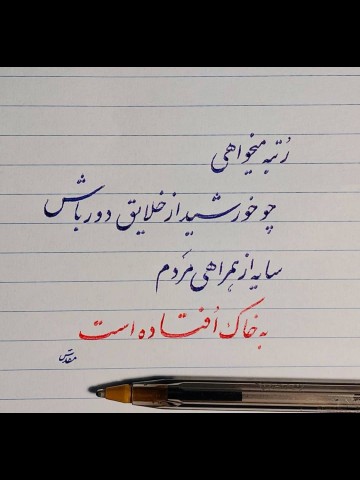 رُتبه میخواهی
چو خورشید از خلایق دور باش
سایه از همراهی مَردم
به خاک اُفتاده است
مقدس